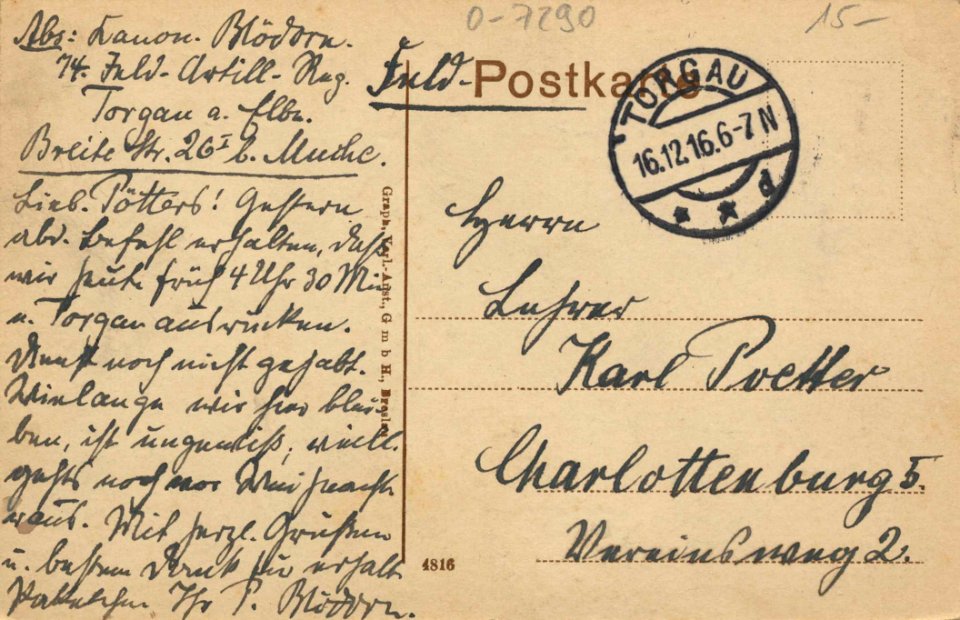 0-7290
15-
Abs: Kanon. Blödorn.
74. Feld-Artill-Reg.
Torgau a. Elbe.
Breite Str. 26 I b. Muche.
Lieb. Pötters! Gestern
abd. Befehl erhalten, daß
wir heute früh 4 Uhr 30 Min
n. Torgau ausrücken.
Dienst noch nicht gehabt.
Wielange wir hier blei-
ben, ist ungewiß; viell.
gehts noch vor Weihnacht
raus. Mit herzl. Grüßen
u. bestem Dank für erhalt
Paketchen Ihr P. Blödorn.
Feld-Postkarte
TORGAU
16.12.16.6-7N
* * d
Graph. Verl.-Anst., G m b H., Breslau
Herrn
Lehrer
Karl Poetter
Charlottenburg 5.
Vereinsweg 2.
4816